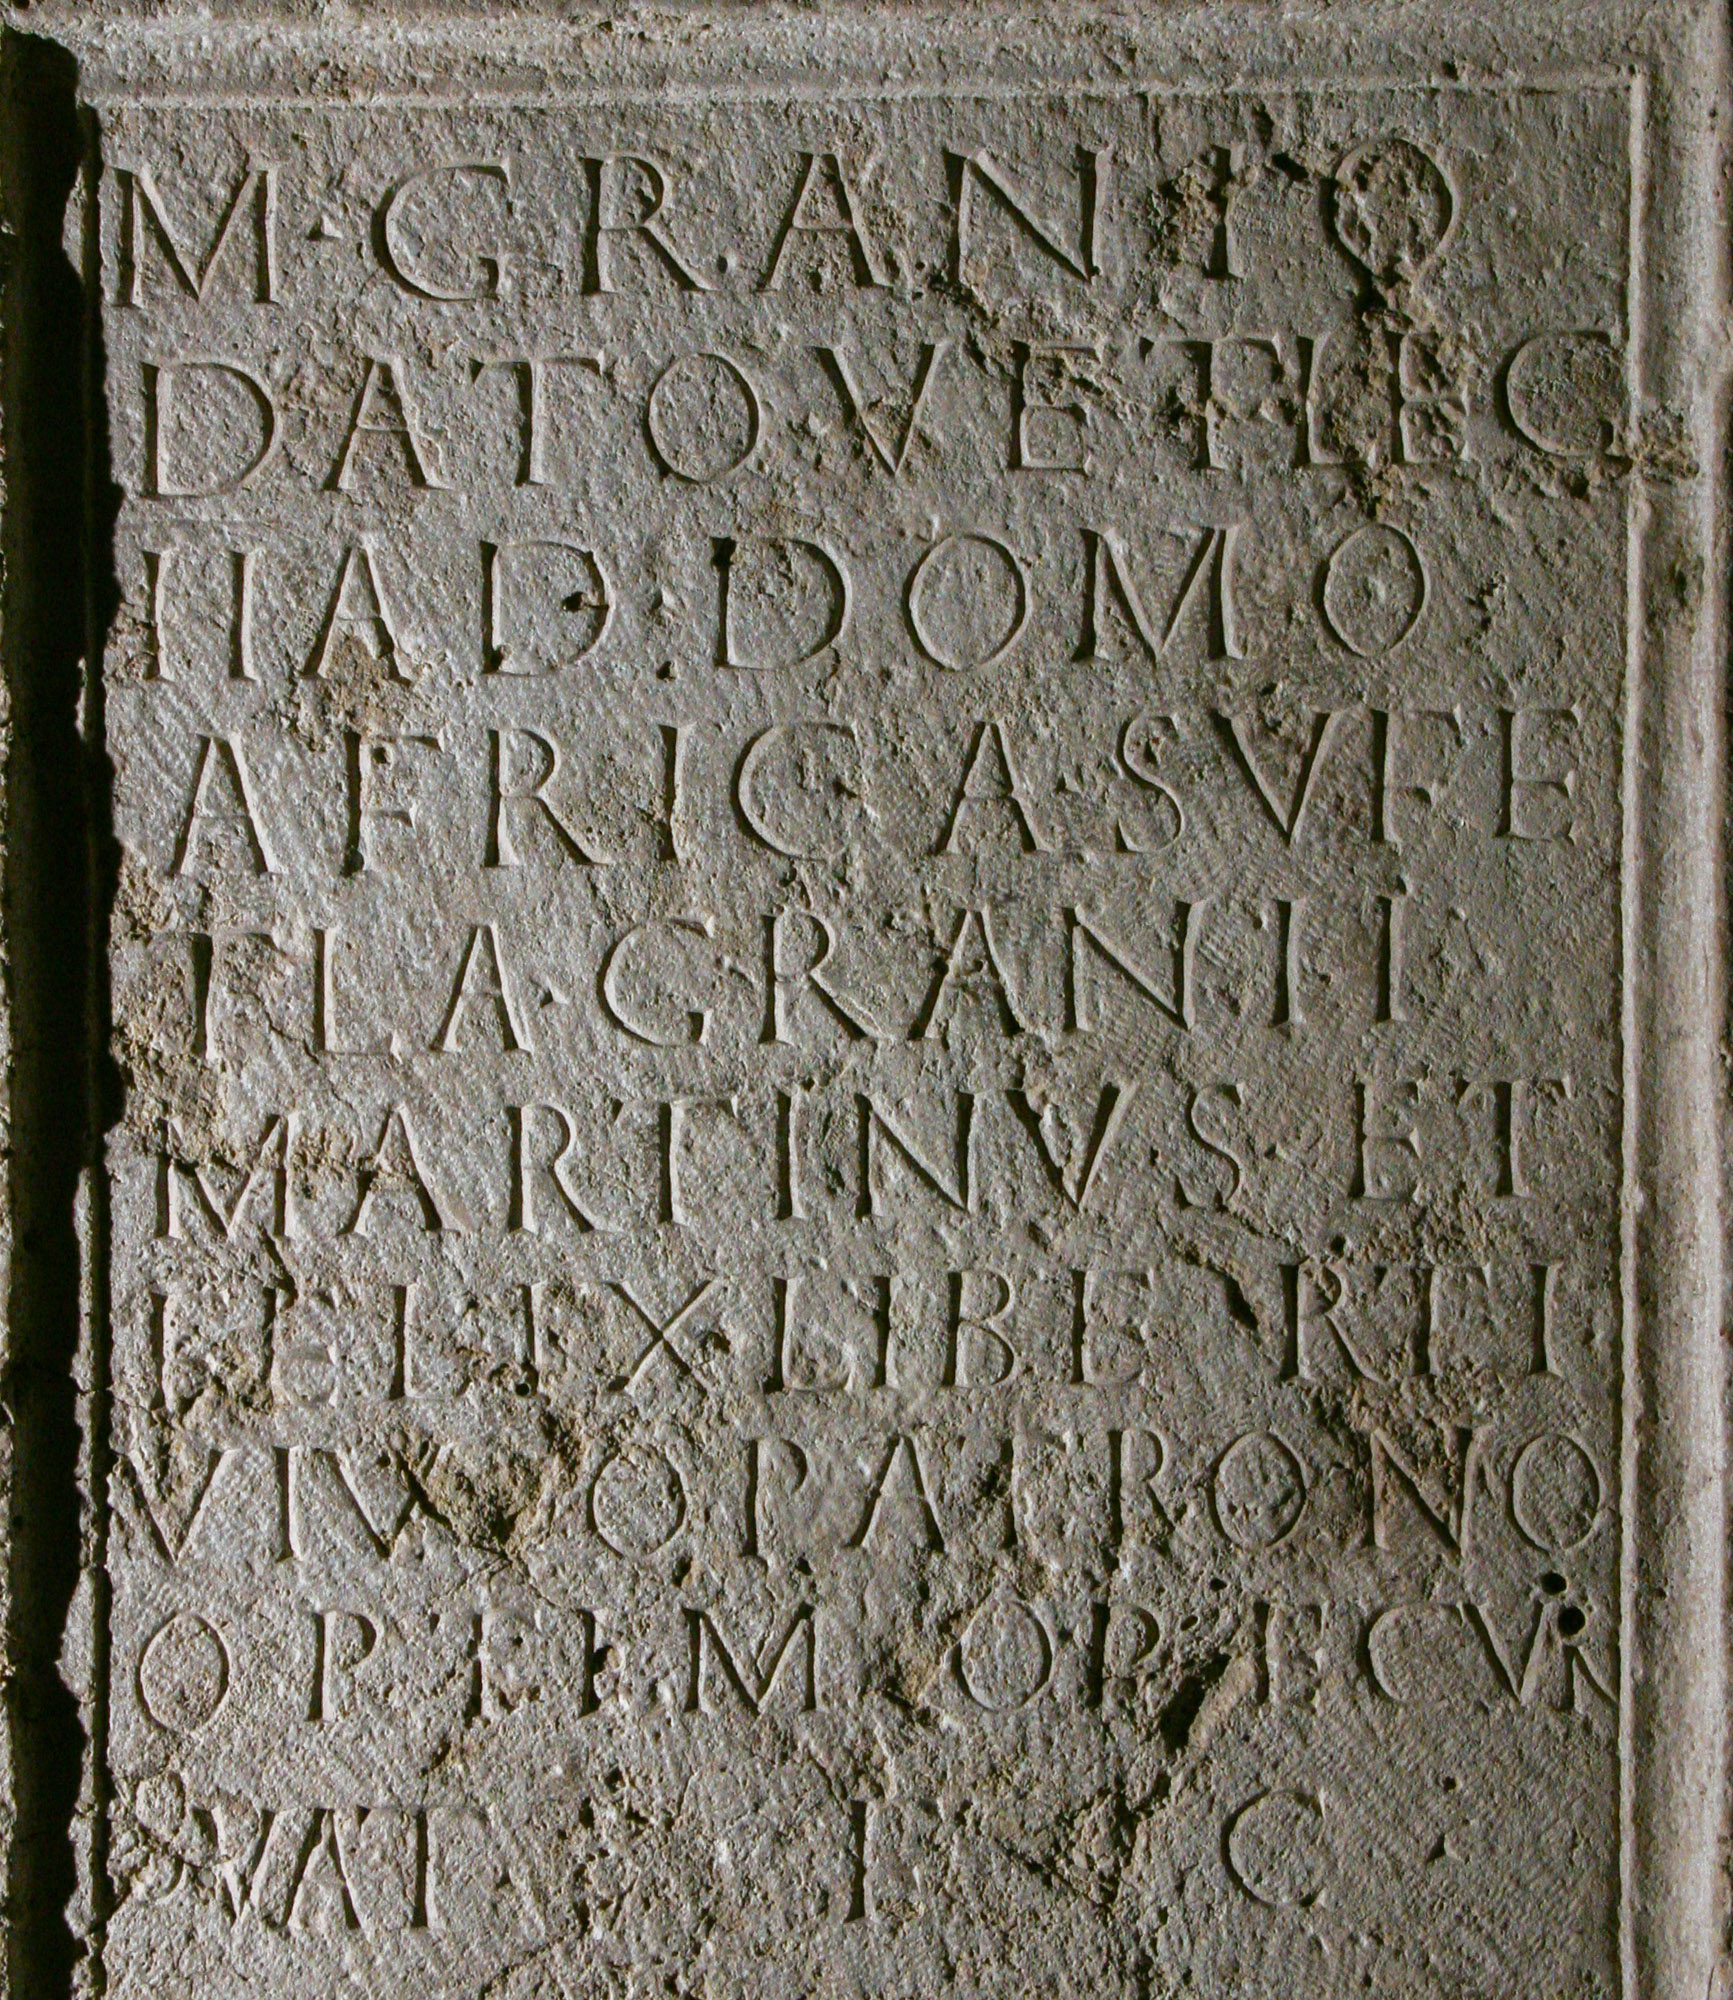 M·GRANIO
DATO·VET·LEG
II AD·DOMO
AFRICA·SVFE
TLA·GRANII
MARTINVS·ET
FELIX LIBERTI
VIVO PATRONO
OPTIM
SVAT· I C·